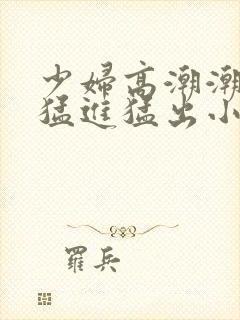 少婦高潮潮
猛進猛出小
羅兵